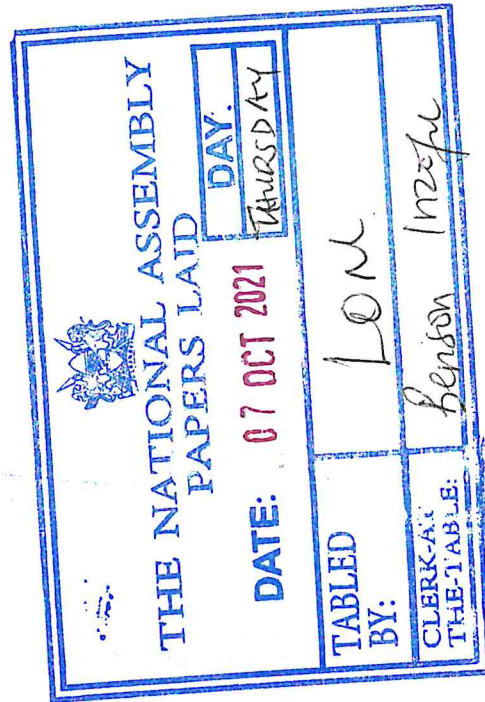 THE NATIONAL ASSEMBLY
PAPERS LAID
DATE: 07 OCT 2021
DAY.
THURSDAY
TABLED
BY:
LOM
CLERK-AT
THE-TABLE:
Benson Inzofu